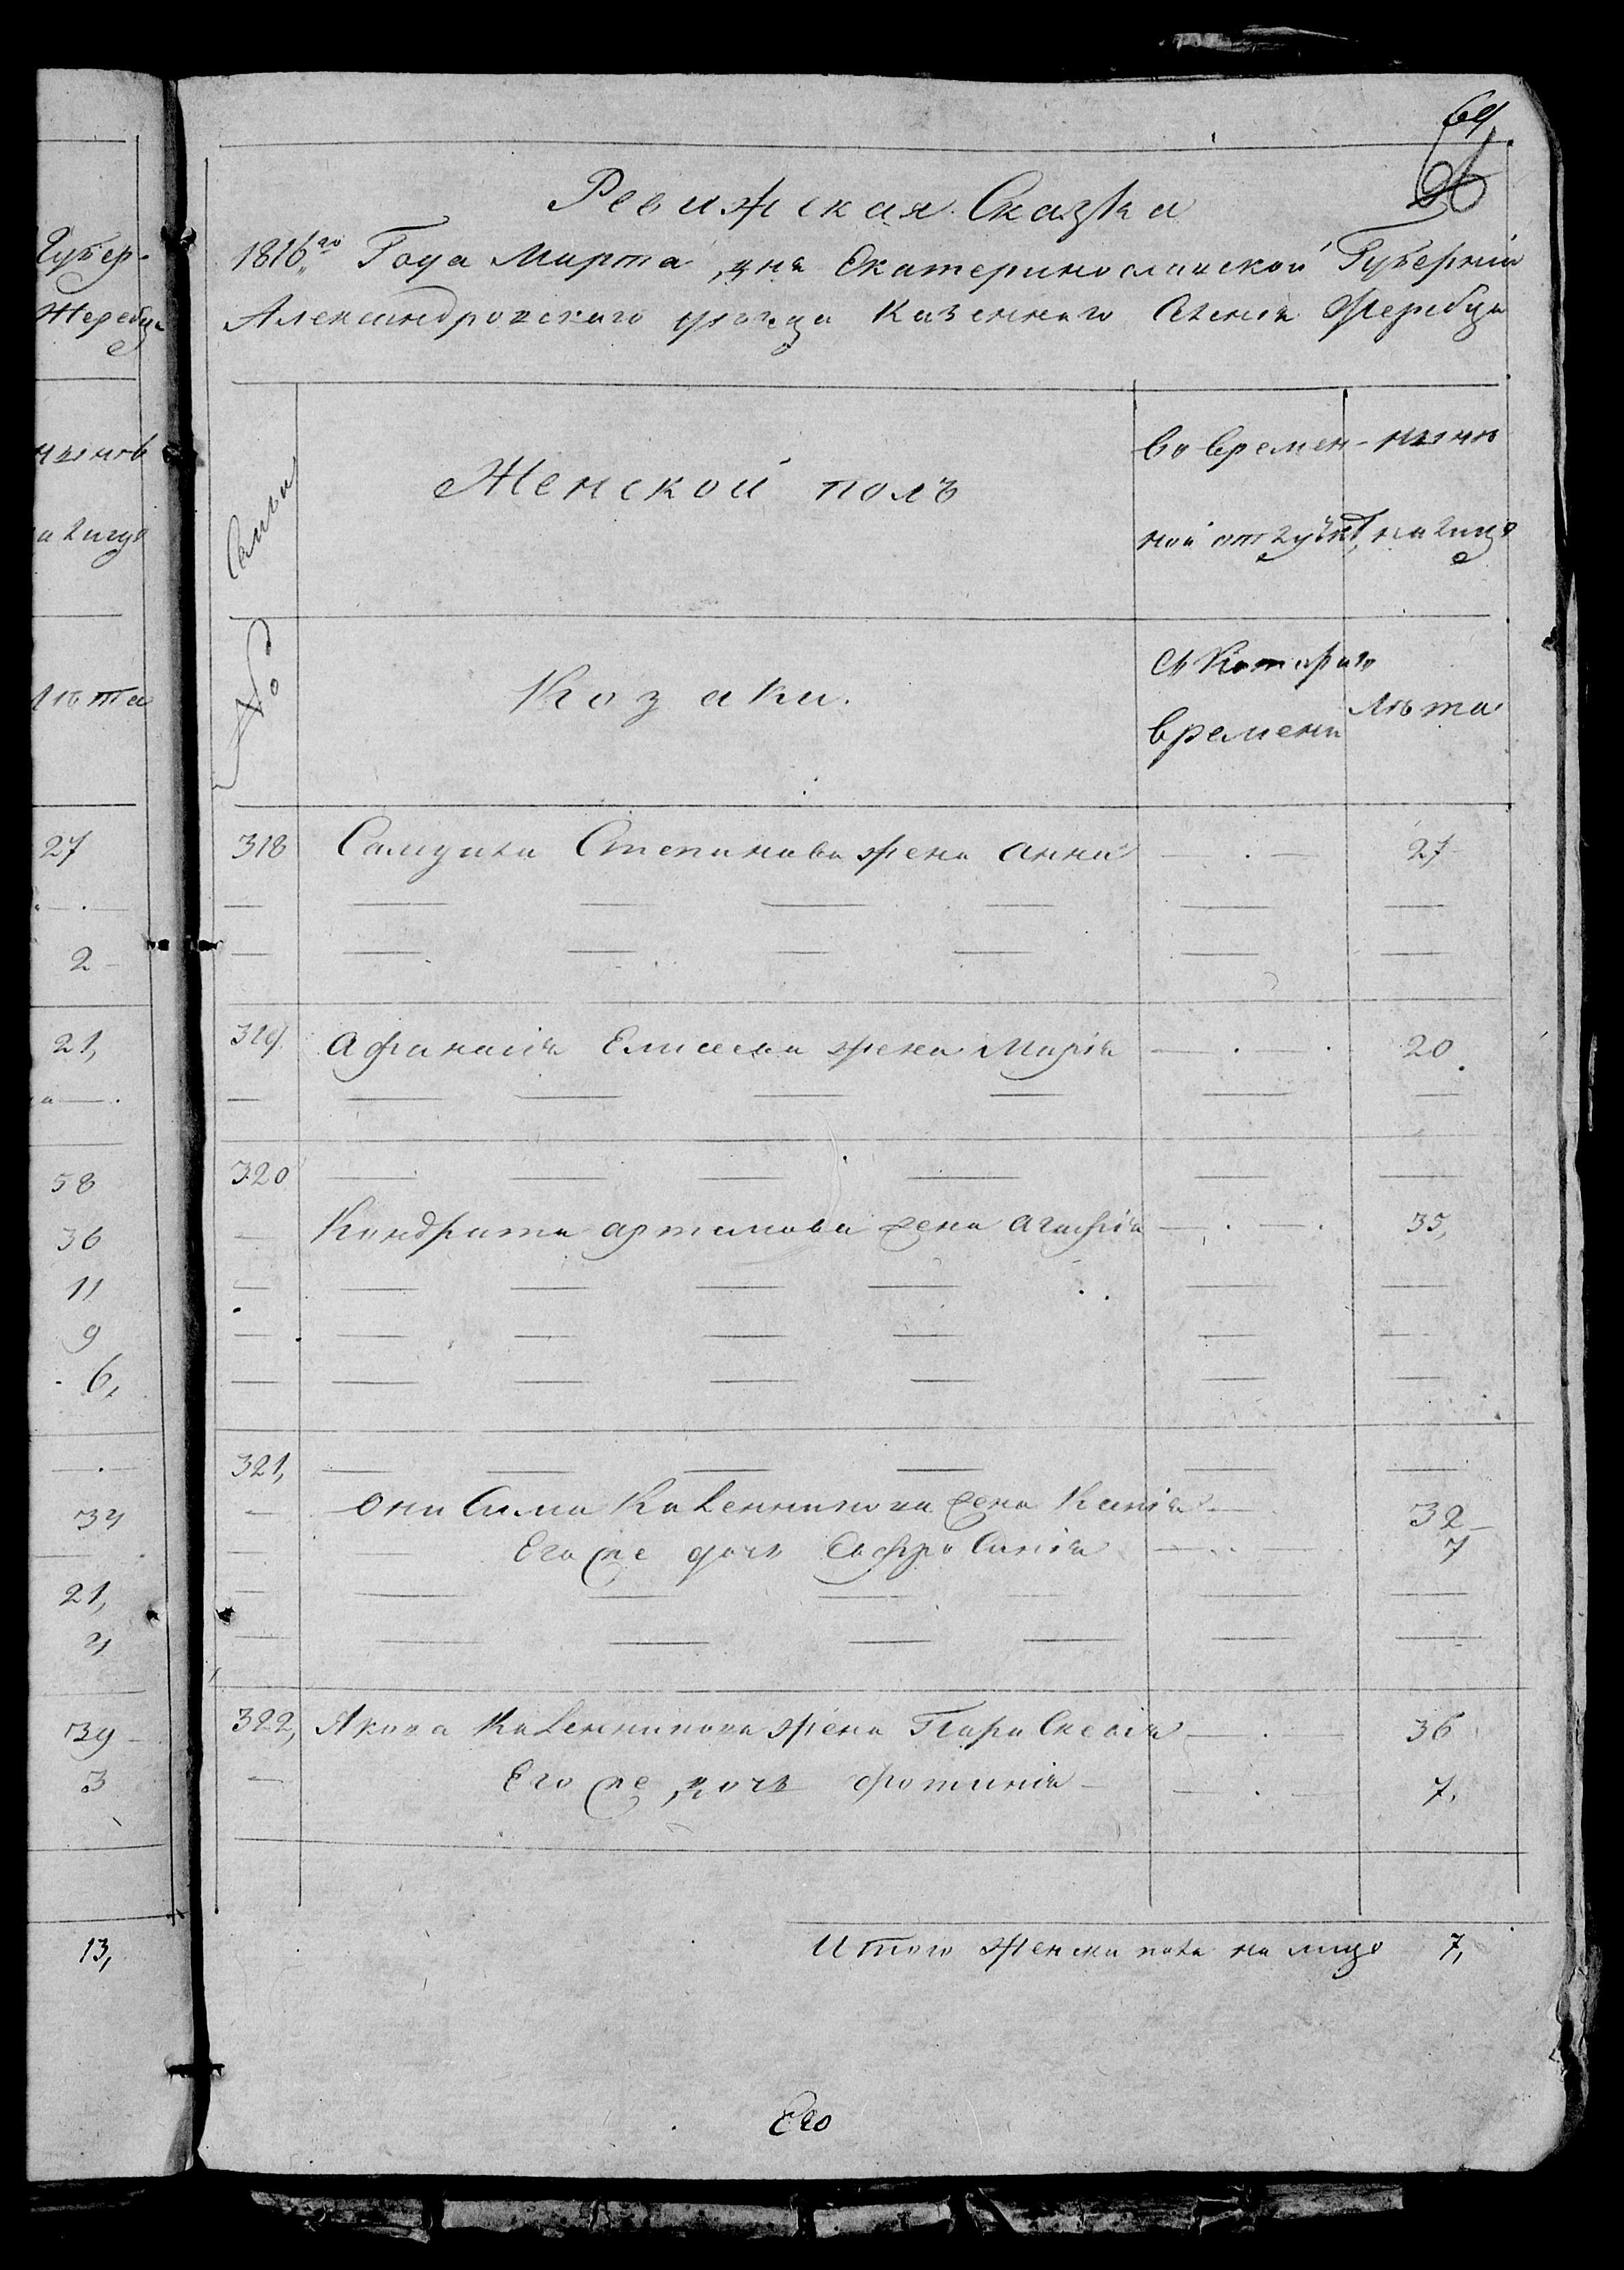 69
Губер-
Жеребца
нынѣ
налицо
лѣта
27
2
21,
58
36
11
9
6,
34
21,
39
3
13,
Ревижская Сказка
1816го Года Марта дня Екатеринославской Губерніи
Александровского уѣзда Казенного Селенія Жеребца
Семьи
Женской полъ
во времен- нынѣ
ной отлучкѣ налицо
№
Козаки.
съ Котораго
времени
лѣта
318 Самуила Степанова жена Анна 27
319 Афанасія Елисеева жена Марія 20
320
Кондрата Артемова жена Агафія 35,
321,
Онисима Калениикова жена Ксенія 32
Его же дочь Евфросинія 7
322, Якова Калениикова жена Параскевія 36
Его же дочь Фотинія 7,
Итого женска пола на лицо 7,
Его